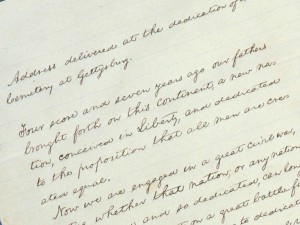 Address delivered at the dedication of
Cemetery at Gettysburg.
Four score and seven years ago our fathers
brought forth on this continent, a new na-
tion, conceived in Liberty, and dedicated
to the proposition that all men are cre-
ated equal.
Now we are engaged in a great civil war,
whether that nation, or any nation
and so dedicated, can long
on a great battle-f
to dedicate